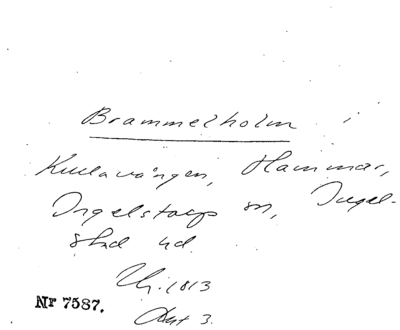 Brammelholm i
Kullavången, Hammar,
Ingelstorps sn, Ingel-
stad hd.
Uh. 1813
Akt 3.
Nr 7587.